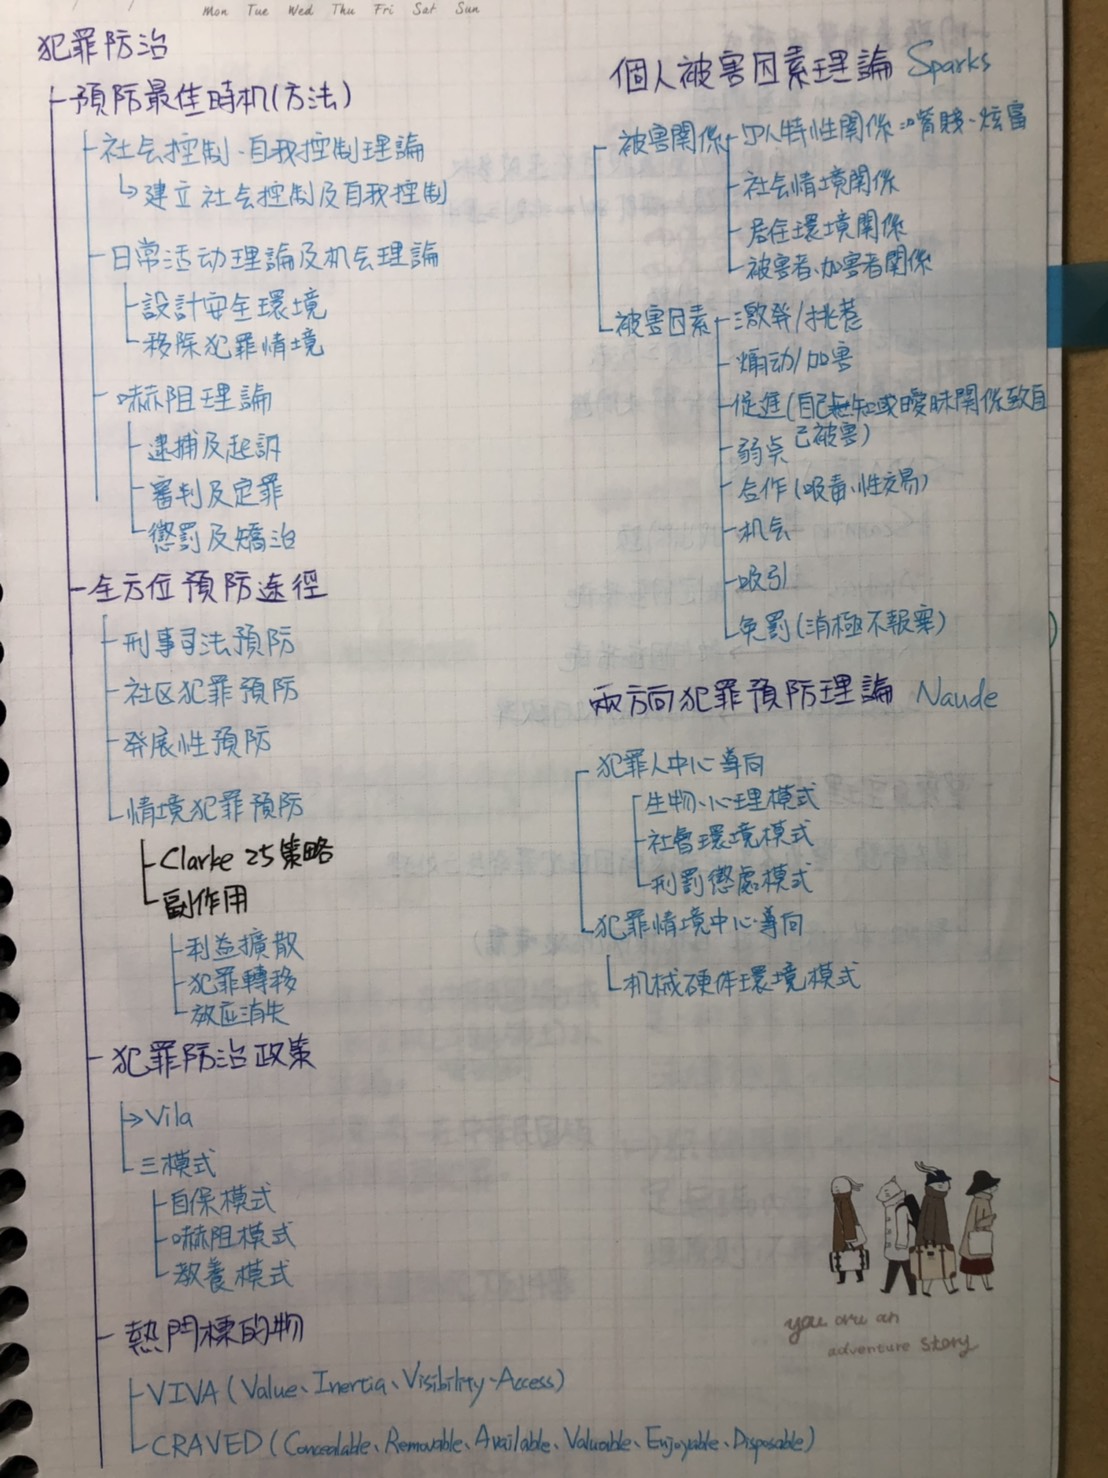 Mon Tue Wed Thu Fri Sat Sun
犯罪防治
預防最佳時机(方法)
社会控制、自我控制理論
建立社会控制及自我控制
日常活动理論及机会理論
設計安全環境
移除犯罪情境
嚇阻理論
逮捕及起訴
審判及定罪
懲罰及矯治
全方位預防途徑
刑事司法預防
社区犯罪預防
発展性預防
情境犯罪預防
Clarke 25策略
副作用
利益擴散
犯罪轉移
效应消失
犯罪防治政策
Vila
三模式
自保模式
嚇阻模式
教養模式
熱門標的物
VIVA (Value、Inertia、Visibility、Access)
CRAVED (Concealable、Removable、Available、Valuable、Enjoyable、Disposable)
個人被害因素理論 Sparks
被害関係
人特性関係 炫富
社会情境関係
居住環境関係
被害者、加害者関係
被害因素
激発/挑惹
煽动/加害
促進(自己無知或曖昧関係致自
己被害)
弱点
合作(吸毒、性交易)
机会
吸引
免罰(消極不報案)
兩方向犯罪預防理論 Naude
犯罪人中心導向
生物、心理模式
社會環境模式
刑罰懲處模式
犯罪情境中心導向
机械硬体環境模式
you are an
adventure story